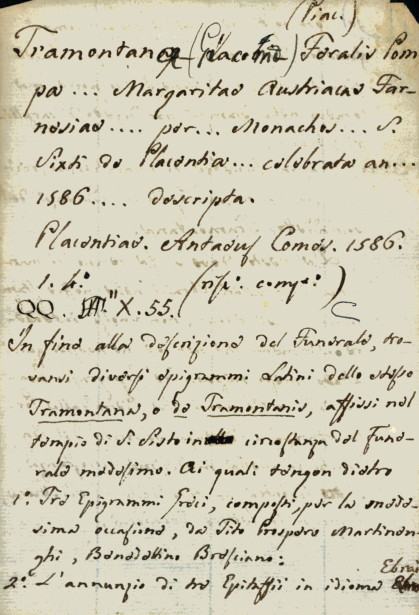 (Piac.)
Tramontana (Placond) Feralis Pom
pa ... Margaritae Austriacae Far-
nesiae .... per... Monachos... S.
Sixti de Placentia... celebrata an...
1586.... descripta.
Placentiae. Anteus Comes. 1586.
1. 4.º
QQ. X. 55.
In fine alla descrizione del Funerale, tro-
vansi diversi epigrammi Latini dello stesso
Tramontana, o de Tramontanis, affissi nel
tempio di S. Sisto in circostanza del Fune-
rale medesimo. Ai quali tengon dietro
1.º Tre Epigrammi Greci, composti, per la mede-
sima occasione, da Tito Prospero Martinen-
ghi, Benedettino Bresciano:
Ebrai
2.º L'annunzio di tre Epitaffii in idioma